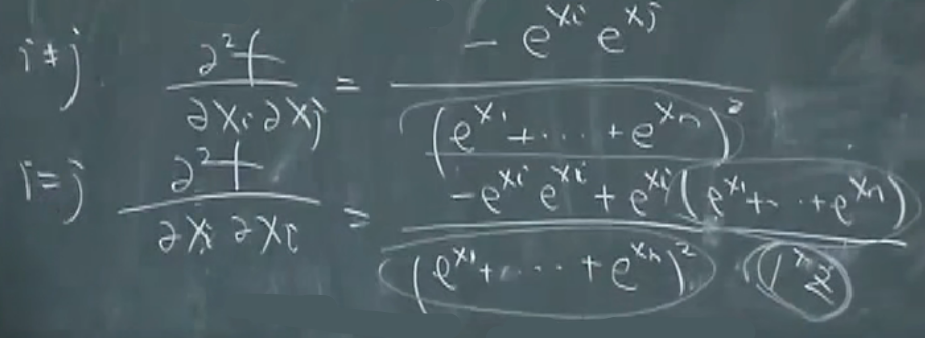 i ≠ j ∂²f / ∂xᵢ ∂xⱼ = - e^{xᵢ} e^{xⱼ} / (e^{x₁} + ... + e^{xₙ})²
i = j ∂²f / ∂xᵢ ∂xᵢ = -e^{xᵢ} e^{xᵢ} + e^{xᵢ} (e^{x₁} + ... + e^{xₙ}) / (e^{x₁} + ... + e^{xₙ})²